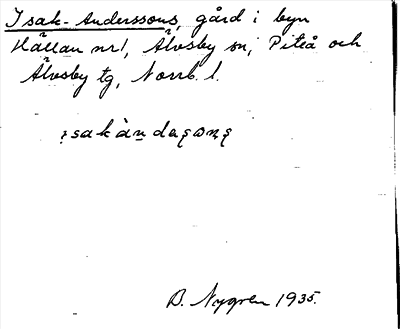 Isak-Anderssons, gård i byn
Hällan nr 1, Älvsby sn, Piteå och
Älvsby tg, Norrb. l.
B. Nygren 1935.